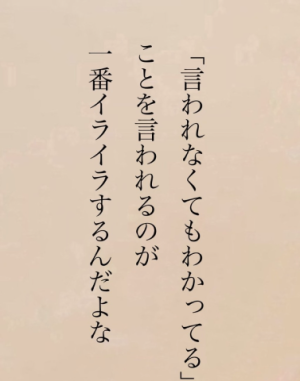 「言われなくてもわかってる」
ことを言われるのが
一番イライラするんだよな